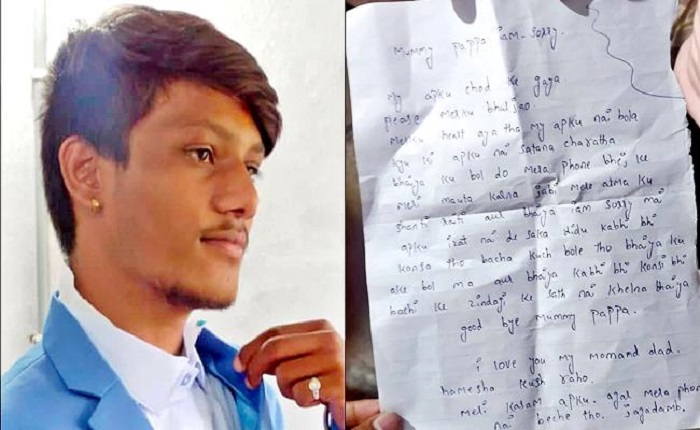 Mummy pappa iam sorry.
my apku chod ke gaya
please merku bhuljao.
merku heart aya tha my apku nai bola
kyu ki apku nai satana chahatha
bhaiya ku bol do mera phone bhej ke
meri mauta karna jabi mere atma ku
shanti rati aur bhaiya iam sorry ma
apku izat na de saka didu kabhi bhi
konsa tho bacha kuch bole tho bhaiya ku
ake bol ma aur bhaiya kabhi bhi konsi bhi
ke zindagi ke sath na khelna bhaiya
good bye Mummy pappa.
i love you my mom and dad.
hamesha kush raho.
meri kasam apku agar mera phone
nai beche tho. jagadamb.